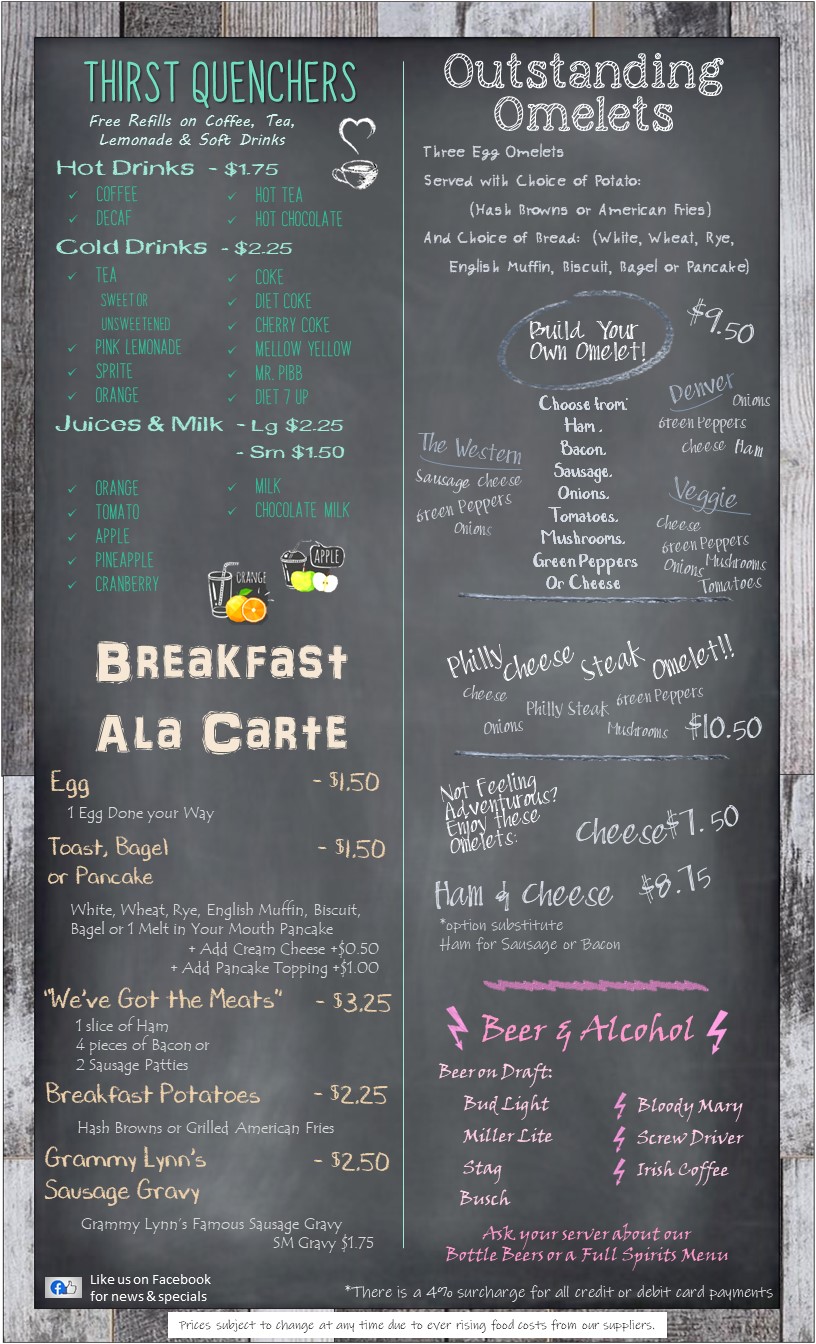 THIRST QUENCHERS
Free Refills on Coffee, Tea,
Lemonade & Soft Drinks
Hot Drinks - $1.75
✓ COFFEE
✓ DECAF
✓ HOT TEA
✓ HOT CHOCOLATE
Cold Drinks - $2.25
✓ TEA
SWEET OR
UNSWEETENED
✓ PINK LEMONADE
✓ SPRITE
✓ ORANGE
✓ COKE
✓ DIET COKE
✓ CHERRY COKE
✓ MELLOW YELLOW
✓ MR. PIBB
✓ DIET 7 UP
Juices & Milk - Lg $2.25
- Sm $1.50
✓ ORANGE
✓ TOMATO
✓ APPLE
✓ PINEAPPLE
✓ CRANBERRY
✓ MILK
✓ CHOCOLATE MILK
ORANGE
APPLE
Breakfast
Ala Carte
Egg - $1.50
1 Egg Done your Way
Toast, Bagel - $1.50
or Pancake
White, Wheat, Rye, English Muffin, Biscuit,
Bagel or 1 Melt in Your Mouth Pancake
+ Add Cream Cheese +$0.50
+ Add Pancake Topping +$1.00
"We've Got the Meats" - $3.25
1 slice of Ham
4 pieces of Bacon or
2 Sausage Patties
Breakfast Potatoes - $2.25
Hash Browns or Grilled American Fries
Grammy Lynn's - $2.50
Sausage Gravy
Grammy Lynn's Famous Sausage Gravy
SM Gravy $1.75
Like us on Facebook
for news & specials
Outstanding
Omelets
Three Egg Omelets
Served with Choice of Potato:
(Hash Browns or American Fries)
And Choice of Bread: (White, Wheat, Rye,
English Muffin, Biscuit, Bagel or Pancake)
Build Your
Own Omelet!
$9.50
Choose from:
Ham,
Bacon,
Sausage,
Onions,
Tomatoes,
Mushrooms,
Green Peppers
Or Cheese
The Western
Sausage Cheese
Green Peppers
Onions
Denver
Onions
Green Peppers
Cheese Ham
Veggie
Cheese
Green Peppers
Onions Mushrooms
Tomatoes
Philly Cheese Steak Omelet!!
Cheese
Onions
Philly Steak
Green Peppers
Mushrooms
$10.50
Not Feeling
Adventurous?
Enjoy these
Omelets:
Cheese $7.50
Ham & Cheese $8.75
*option substitute
Ham for Sausage or Bacon
Beer & Alcohol
Beer on Draft:
Bud Light
Miller Lite
Stag
Busch
Bloody Mary
Screw Driver
Irish Coffee
Ask your server about our
Bottle Beers or a Full Spirits Menu
*There is a 4% surcharge for all credit or debit card payments
Prices subject to change at any time due to ever rising food costs from our suppliers.